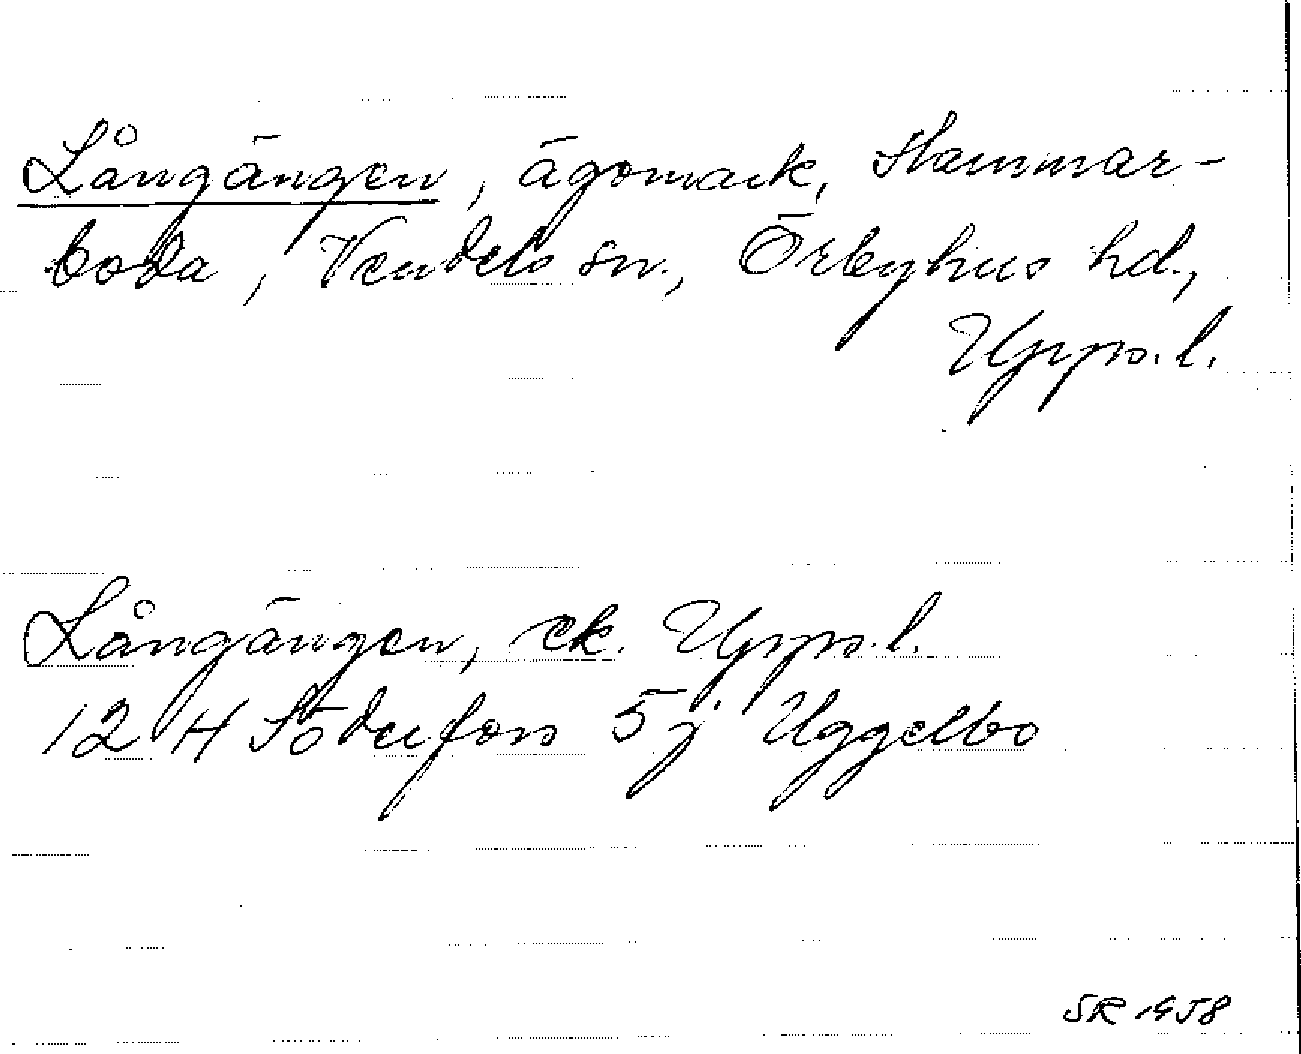 Långängen, ägomark, Hammar-
boda, Vendels sn., Örbyhus hd.,
Upps. l.
Långängen, ek. Upps. l.
12 H Söderfors 5j Uggelbo
SR 1958